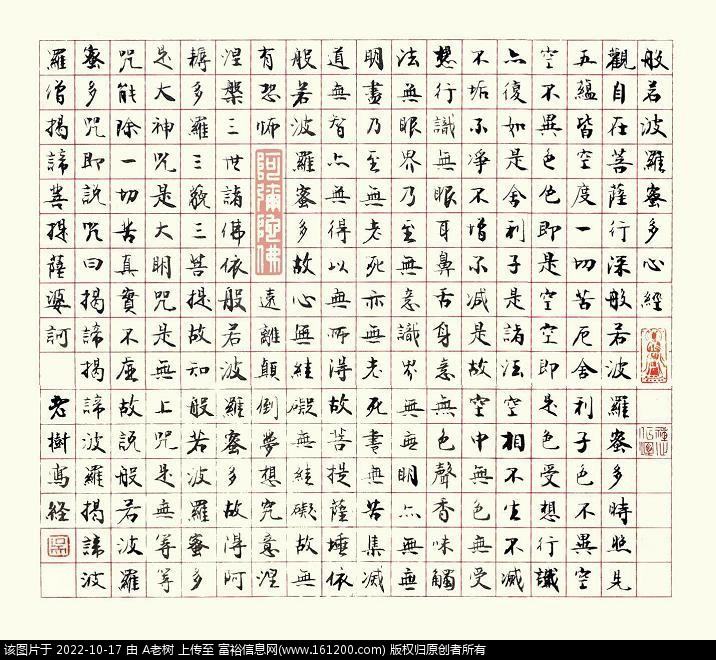 般若波羅蜜多心經
觀自在菩薩行深般若波羅蜜多時照見
五蘊皆空度一切苦厄舍利子色不異空
空不異色色即是空空即是色受想行識
亦復如是舍利子是諸法空相不生不滅
不垢不淨不增不減是故空中無色無受
想行識無眼耳鼻舌身意無色聲香味觸
法無眼界乃至無意識界無無明亦無無
明盡乃至無老死亦無老死盡無苦集滅
道無智亦無得以無所得故菩提薩埵依
般若波羅蜜多故心無罣礙無罣礙故無
有恐怖
阿彌陀佛
遠離顛倒夢想究竟涅
涅槃三世諸佛依般若波羅蜜多故得阿
耨多羅三藐三菩提故知般若波羅蜜多
是大神咒是大明咒是無上咒是無等等
咒能除一切苦真實不虛故說般若波羅
蜜多咒即說咒曰揭諦揭諦波羅揭諦波
羅僧揭諦菩提薩婆訶
老樹寫經
该图片于 2022-10-17 由 A老树 上传至 富裕信息网(www.161200.com) 版权归原创者所有